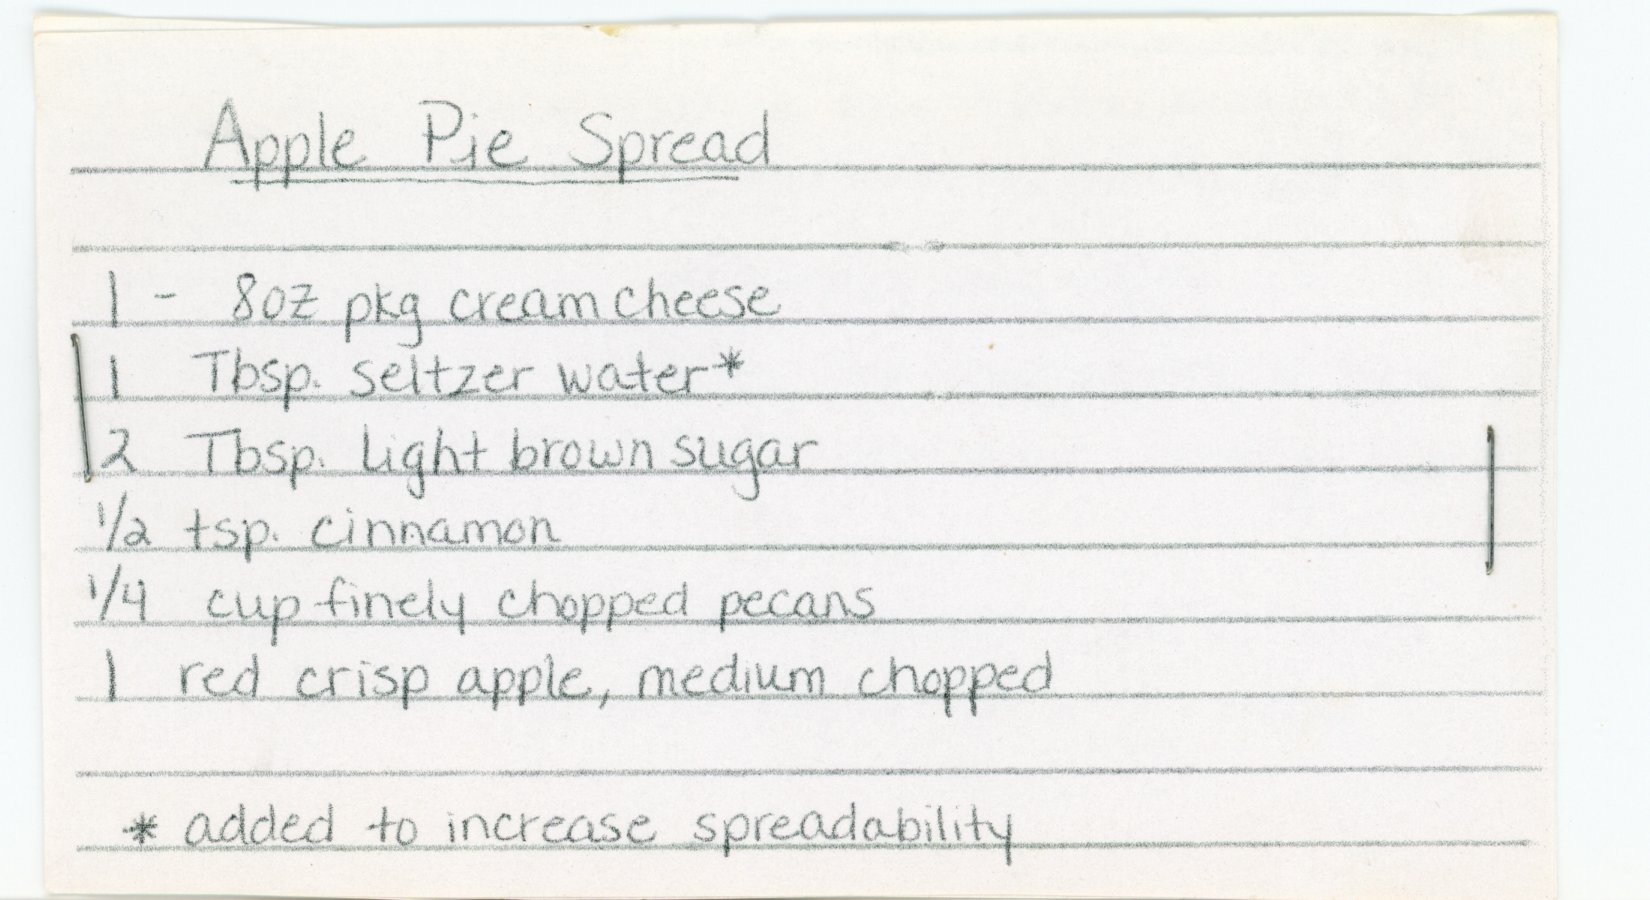 Apple Pie Spread
1 - 8oz pkg cream cheese
1 Tbsp. seltzer water*
2 Tbsp. light brown sugar
1/2 tsp. cinnamon
1/4 cup finely chopped pecans
1 red crisp apple, medium chopped
* added to increase spreadability